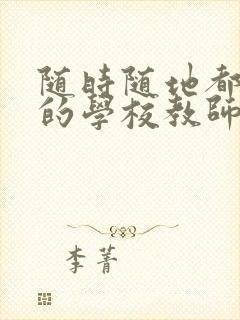 随時随地都
的學校教師
李菁